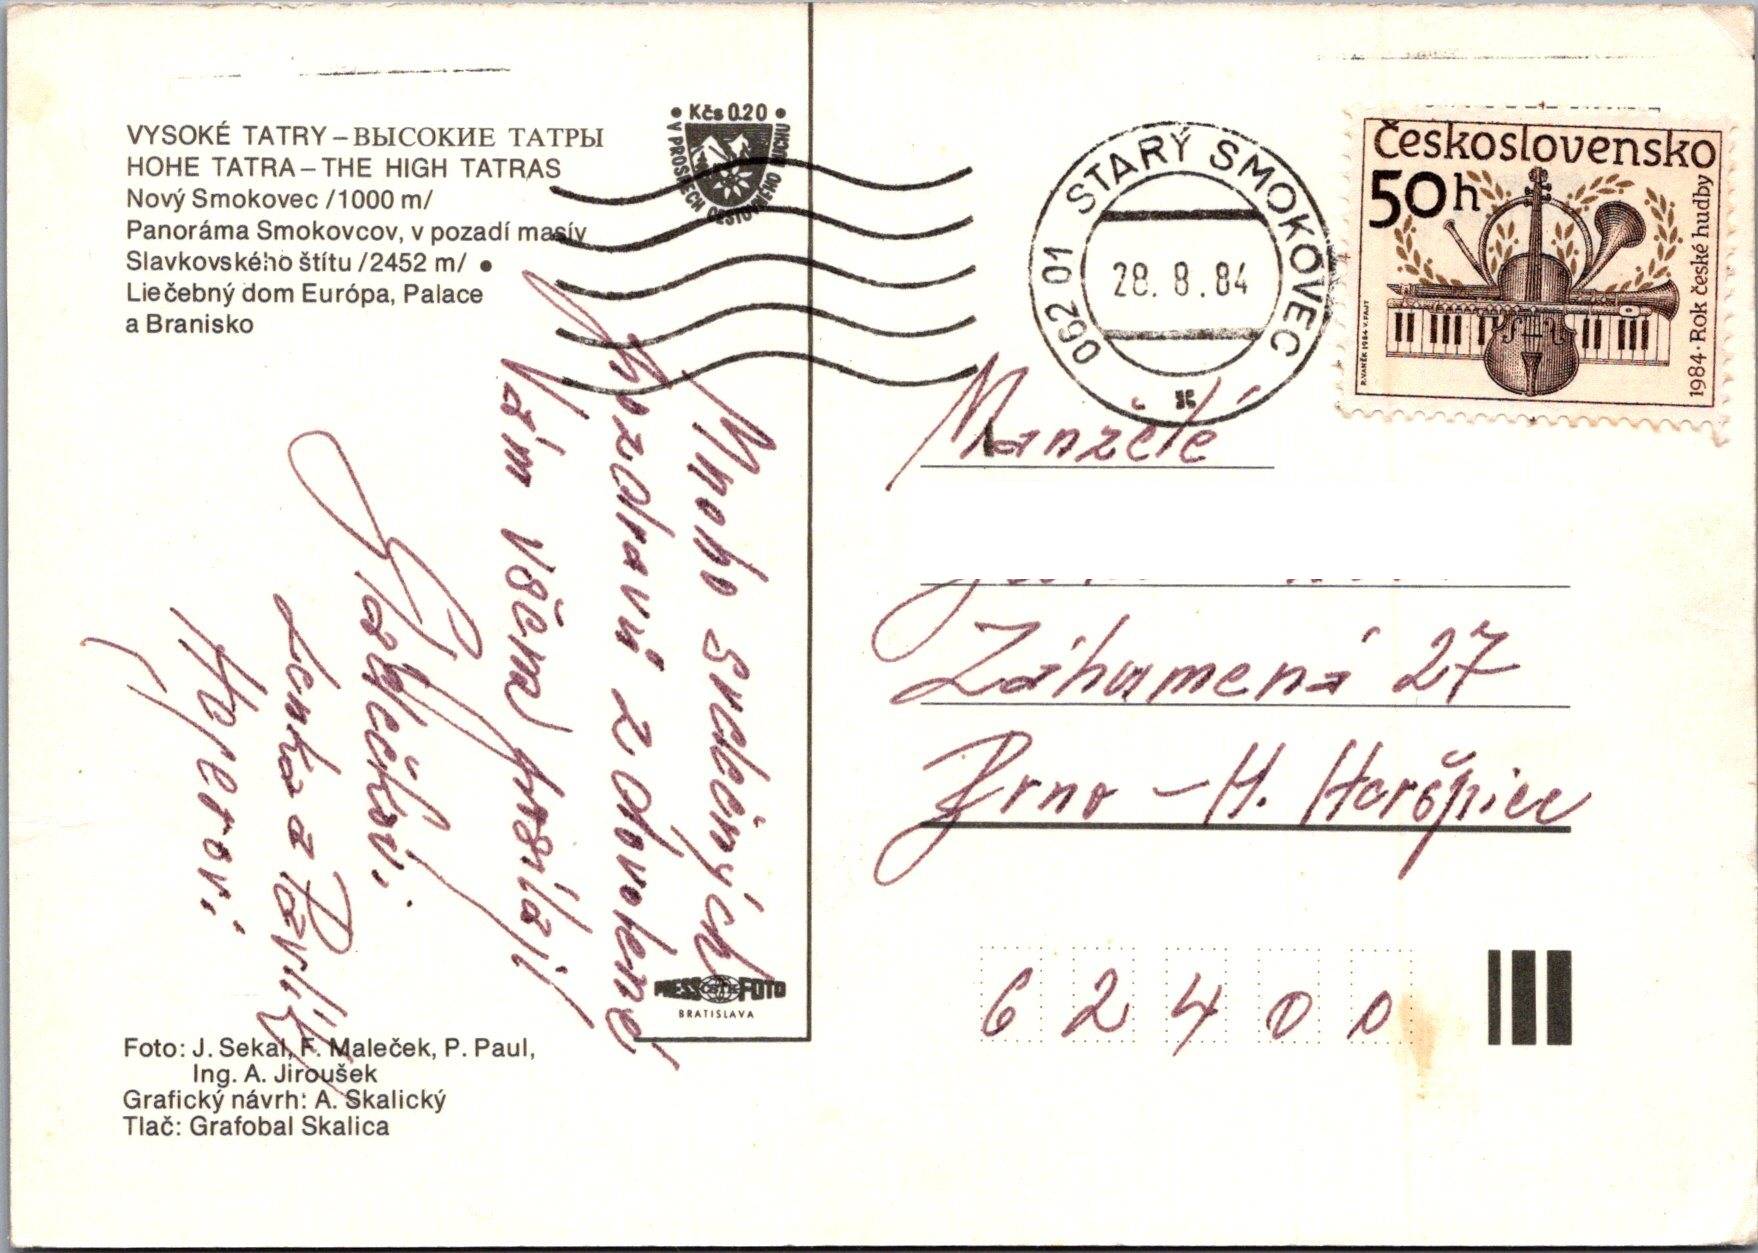 VYSOKÉ TATRY – ВЫСОКИЕ ТАТРЫ
HOHE TATRA – THE HIGH TATRAS
Nový Smokovec /1000 m/
Panoráma Smokovcov, v pozadí masív
Slavkovského štítu /2452 m/ •
Liečebný dom Európa, Palace
a Branisko
• Kčs 0.20 •
V PROSPECH CESTOVNÉHO RUCHU
062 01 STARÝ SMOKOVEC
28. 8. 84
Československo
50h
1984 · Rok české hudby
R. VANĚK 1984 V. FAJT
Mnoho srdečných
pozdravů z dovolené
Vám všem posílají
Lenka a Pavlík
Manželé
Záhumená 27
Brno – H. Heršpice
62400
PRESSFOTO
BRATISLAVA
Foto: J. Sekal, F. Maleček, P. Paul,
Ing. A. Jiroušek
Grafický návrh: A. Skalický
Tlač: Grafobal Skalica